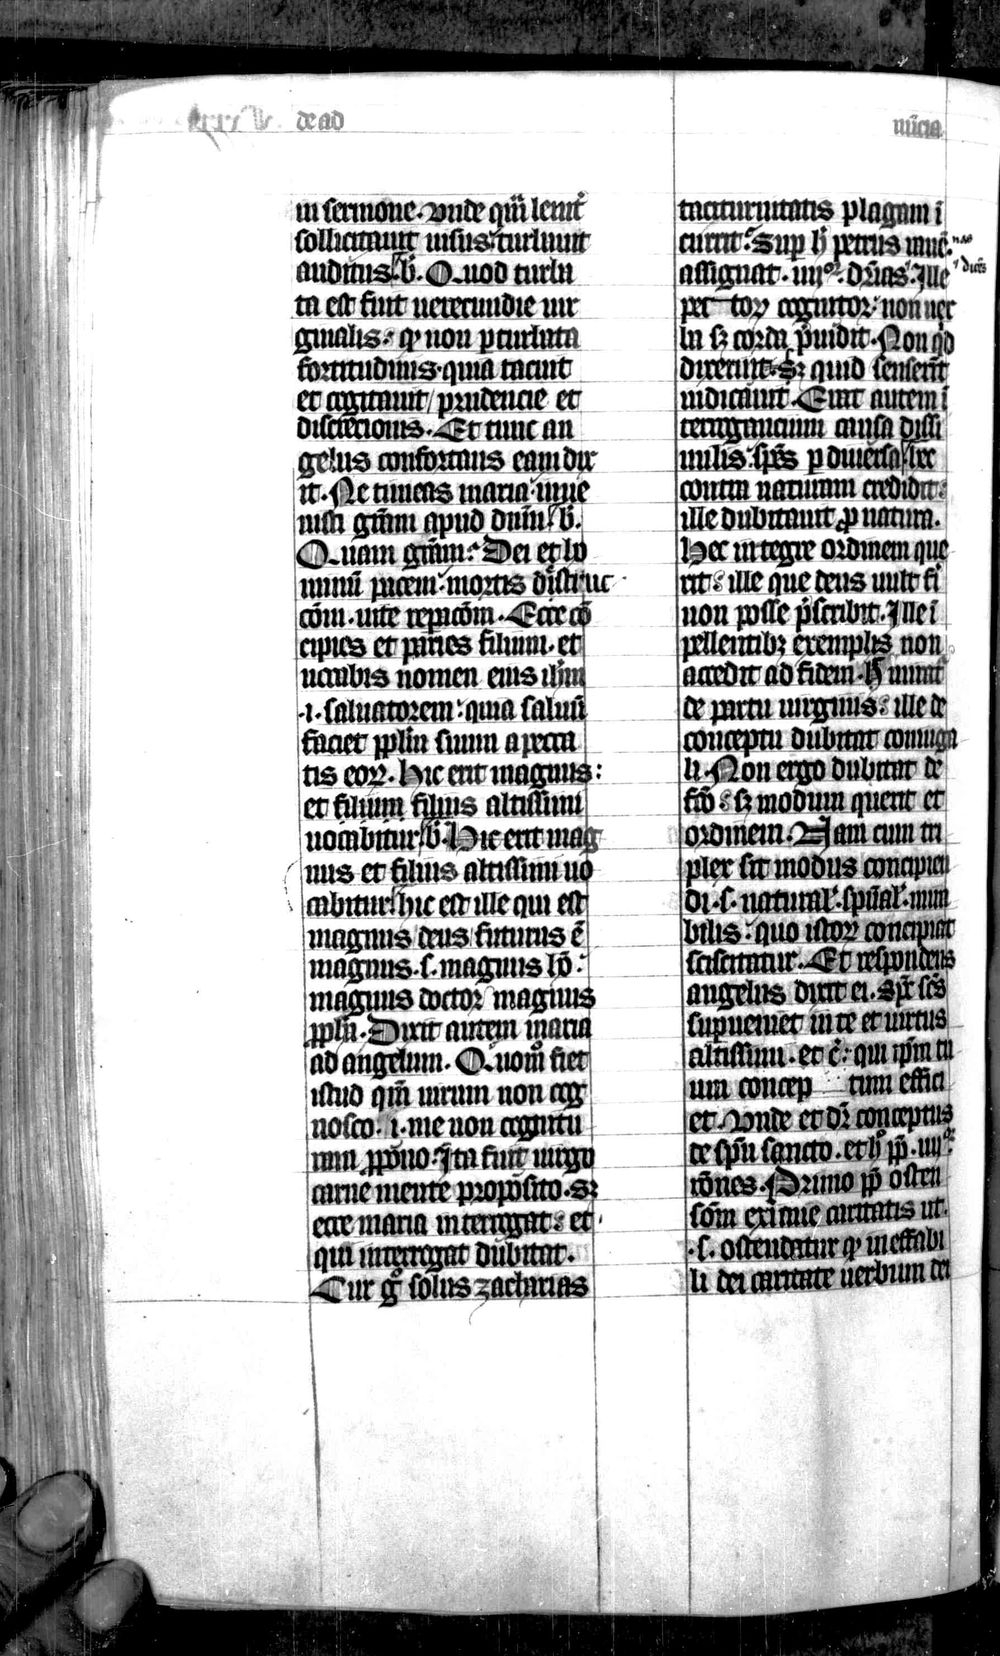 de ad
in sermone. vnde qm̄ lenit᷑
sollicitauit uisus: turbauit
auditus. b̄. Quod turba
ta est fuit uerecundie uir
ginalis: qꝫ non ꝑturbata
fortitudinis. quia tacuit
et cogitauit prudencie et
discrecionis. Et tunc an
gelus confortans eam dix
it. Ne timeas maria inue
nisti grām apud dnm̄. b̄.
Quam grām: Dei et ho
minū pacem. mortis destruc
cōm. uite repacōm. Ecce cō
cipies et paries filium. et
uocabis nomen eius ihm̄
.i. saluatorem: quia saluū
faciet pplm̄ suum a pecca
tis eoꝝ. Hic erit magnus:
et filium filius altissimi
uocabitur. b̄. Hic erit mag
nus et filius altissimi uo
cabitur. hic est ille qui est
magnus deus futurus ē
magnus .s. magnus hō.
magnus doctor magnus
ppħa. Dixit autem maria
ad angelum. Quomͦ fiet
istud qm̄ uirum non cog
nosco. i. me non cognitu
ram ꝓpōno. Ita fuit uirgo
carne mente proposito. Sꝫ
ecce maria interrogat: et
qui interrogat dubitat.
Cur gͦ solus zacharias
nūcia
taciturnitatis plagam ī
currit: Sup hͦ petrus
assignat. iiiiͦʳ. drn̄as. Ille
toꝝ cognitor: non uer
ba sꝫ corda puidit. Non qd
dixerunt. Sꝫ quid senserūt
iudicauit. Erat autem ī
terrogancium causa dissi
milis. spēs ꝑ diuersa. hec
contra naturam credidit:
ille dubitauit ꝓ natura.
Hec integre ordinem que
rit: ille que deus uult fi
non posse pscribit. Ille ī
pellentibꝫ exemplis non
accedit ad fidem.
de partu uirginis: ille de
conceptu dubitat coniuga
li. Non ergo dubitat de
fcō: sꝫ modum querit et
ordinem. Nam cum tri
plex sit modus concipien
di .s. natural'. spūal'. mira
bilis: quo istoꝝ concipiat
sciscitatur. Et respondens
angelus dixit ei. Spс scs
superueniet in te et uirtus
altissimi. et c̄. qui ipm̄ tu
um concep tum effici
et. Vnde et dr̄ conceptus
de spū sancto. et hͦ pp̄ iiiiͦʳ
rōnes. Primo pp̄ osten
sōm eximie caritatis ut
.s. ostendatur qꝫ ineffabi
li dei caritate uerbum dei